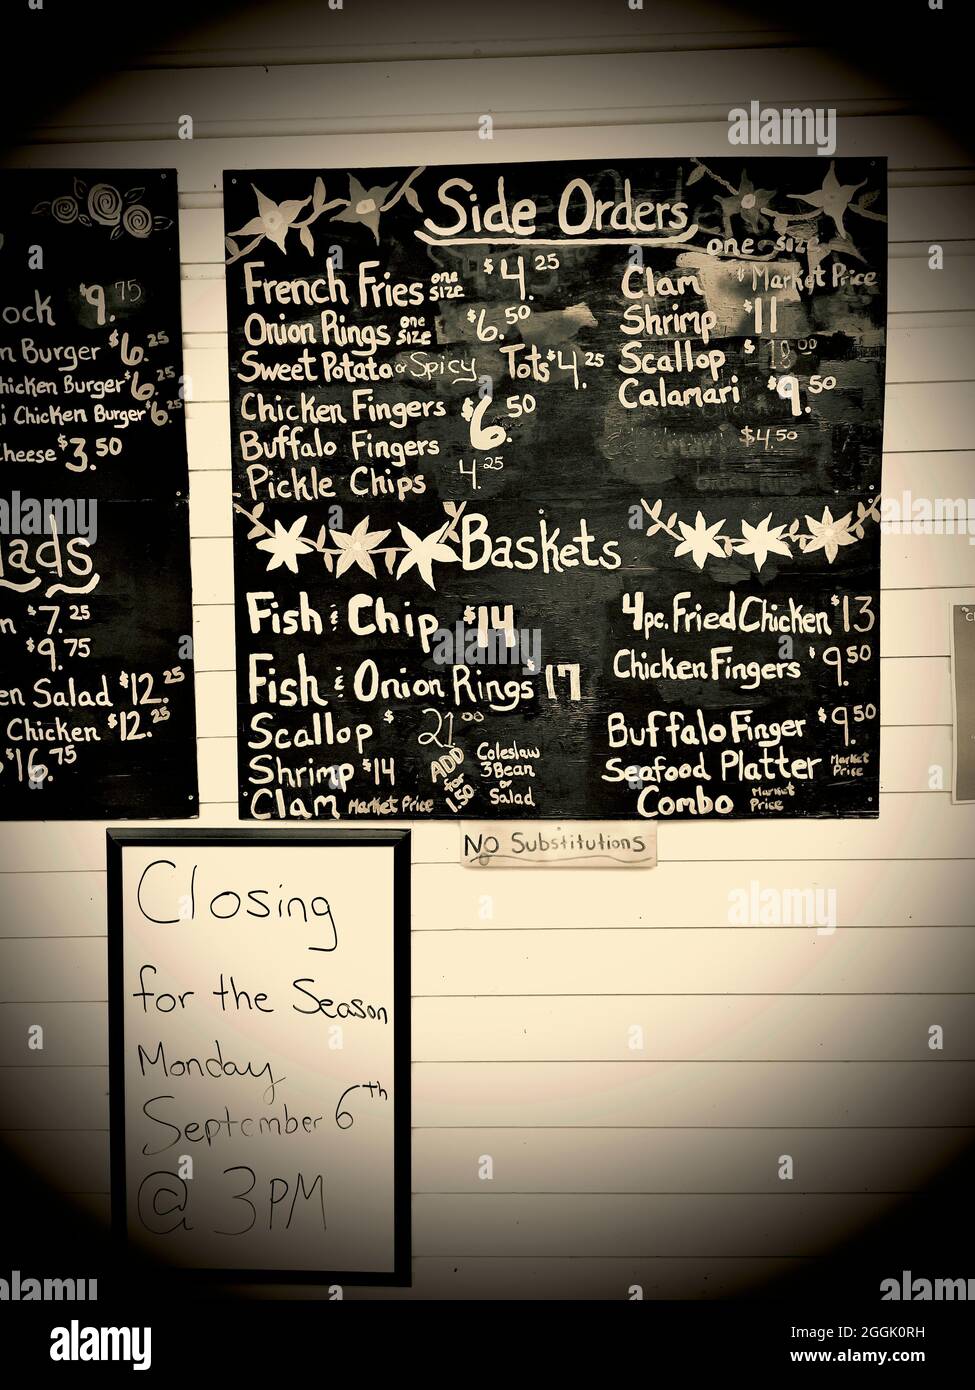 ock $9.75
Burger $6.25
hicken Burger $6.25
i Chicken Burger $6.25
heese $3.50
lads
n $7.25
$9.75
en Salad $12.25
Chicken $12.25
$16.75
Side Orders
one size
French Fries one size $4.25
Onion Rings one size $6.50
Sweet Potato or Spicy Tots $4.25
Chicken Fingers $6.50
Buffalo Fingers
Pickle Chips 4.25
Clam $ Market Price
Shrimp $11
Scallop $ 18.00
Calamari $9.50
$4.50
Baskets
Fish & Chip $14
Fish & Onion Rings $17
Scallop $ 21.00
Shrimp $14
Clam Market Price
ADD for 1.50
Coleslaw
3Bean
or
Salad
4pc. Fried Chicken $13
Chicken Fingers $9.50
Buffalo Finger $9.50
Seafood Platter Market Price
Combo Market Price
NO Substitutions
Closing
for the Season
Monday
September 6th
@ 3PM
alamy
a
alamy
Image ID: 2GGK0RH
www.alamy.com